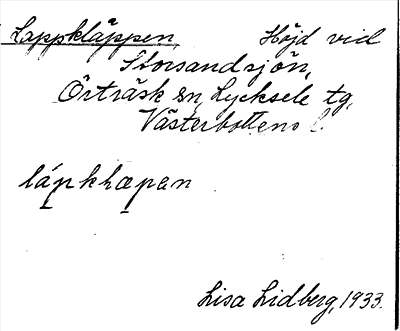 Lappkläppen, Höjd vid
Storsandsjön,
Örträsk sn, Lycksele tg,
Västerbottens l.
lápkhæpan
Lisa Lidberg, 1933.